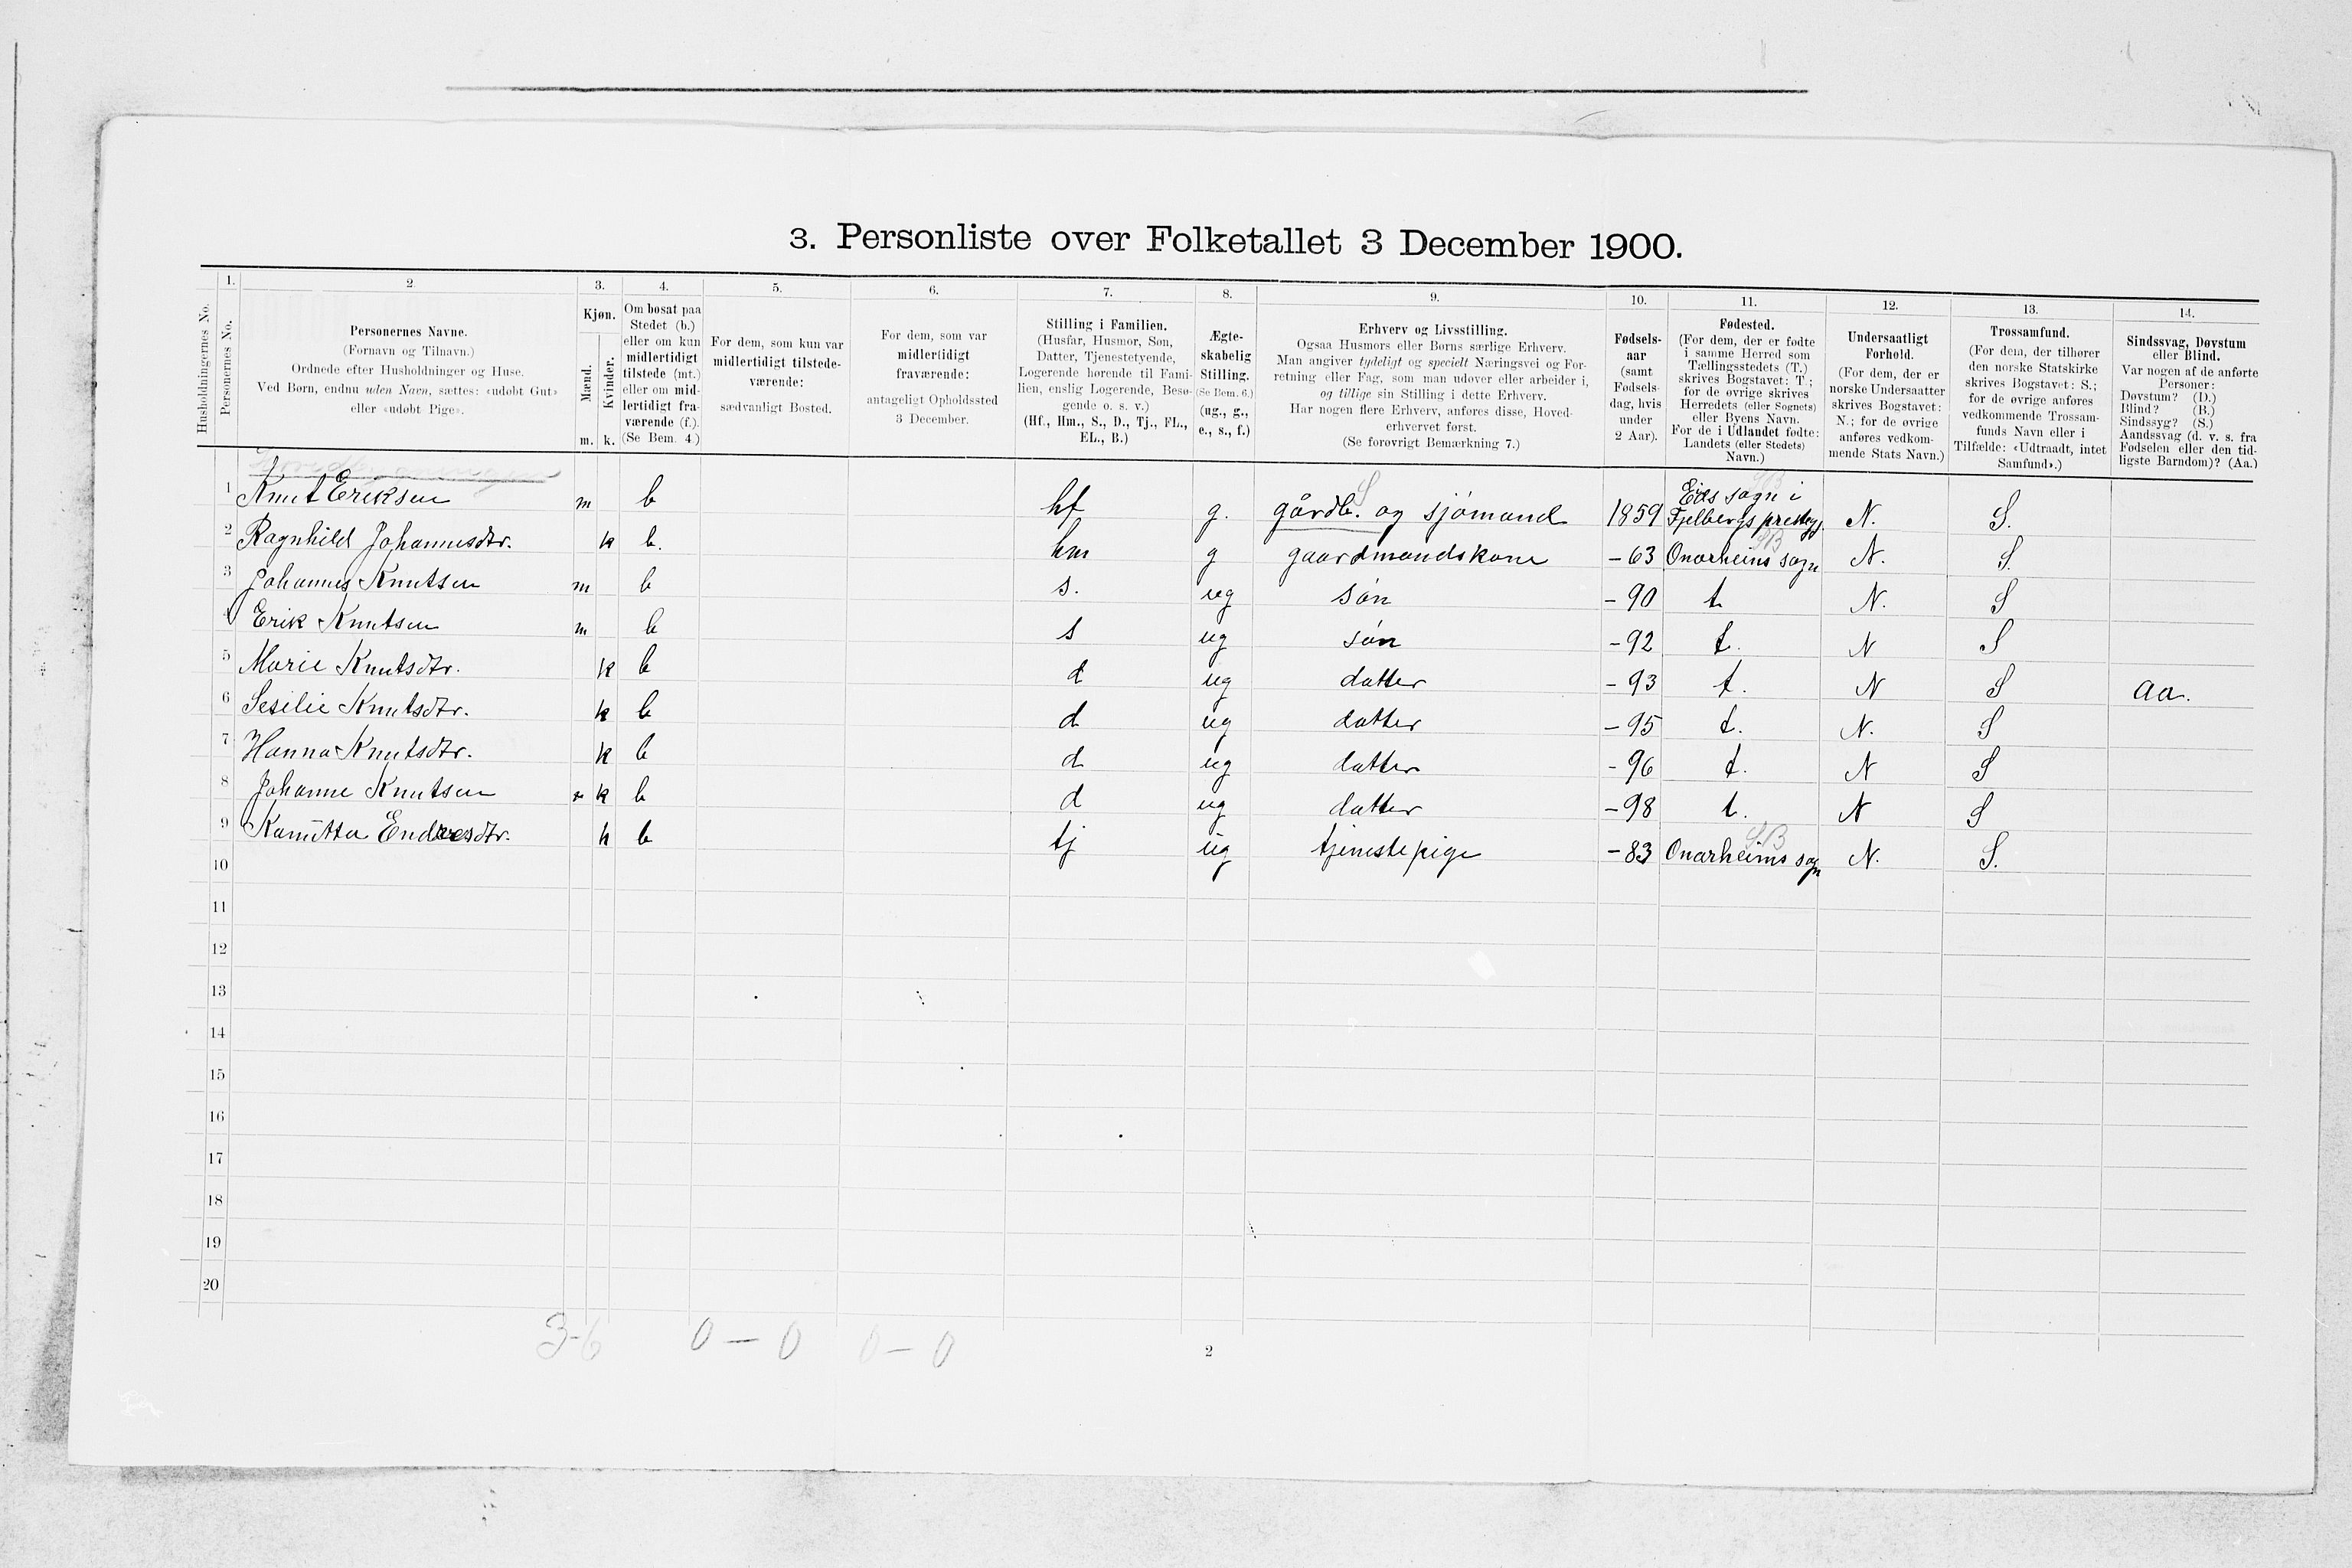 3. Personliste over Folketallet 3 December 1900.
Husholdningernes No.
1.
Personernes No.
2
Personernes Navne.
(Fornavn og Tilnavn.)
Ordnede efter Husholdninger og Huse.
Ved Børn, endnu uden Navn, sættes: «udøbt Gut»
eller «udøbt Pige».
3.
Kjøn.
Mænd.
Kvinder.
m.
k.
4.
Om bosat paa
Stedet (b.)
eller om kun
midlertidigt
tilstede (mt.)
eller om mid-
lertidigt fra-
værende (f.).
(Se Bem. 4.)
5.
For dem, som kun var
midlertidigt tilstede-
værende:
sædvanligt Bosted.
6.
For dem, som var
midlertidigt
fraværende:
antageligt Opholdssted
3 December.
7.
Stilling i Familien.
(Husfar, Husmor, Søn,
Datter, Tjenestetyende,
Logerende hørende til Fami-
lien, enslig Logerende, Besø-
gende o. s. v.)
(Hf., Hm., S., D., Tj., FL.,
EL., B.)
8.
Ægte-
skabelig
Stilling.
(Se Bem. 6.)
(ug., g.,
e., s., f.)
9.
Erhverv og Livsstilling.
Ogsaa Husmors eller Børns særlige Erhverv.
Man angiver tydeligt og specielt Næringsvei og For-
retning eller Fag, som man udøver eller arbeider i,
og tillige sin Stilling i dette Erhverv.
Har nogen flere Erhverv, anføres disse, Hoved-
erhvervet først.
(Se forøvrigt Bemærkning 7.)
10.
Fødsels-
aar
(samt
Fødsels-
dag, hvis
under
2 Aar).
11.
Fødested.
(For dem, der er fødte
i samme Herred som
Tællingsstedets (T.)
skrives Bogstavet: T.;
for de øvrige skrives
Herredets (eller Sognets)
eller Byens Navn.
For de i Udlandet fødte:
Landets (eller Stedets)
Navn.)
12.
Undersaatligt
Forhold.
(For dem, der er
norske Undersaatter
skrives Bogstavet:
N.; for de øvrige
anføres vedkom-
mende Stats Navn.)
13.
Trossamfund.
(For dem, der tilhører
den norske Statskirke
skrives Bogstavet: S.;
for de øvrige anføres
vedkommende Trossam-
funds Navn eller i
Tilfælde: «Udtraadt, intet
Samfund».)
14.
Sindssvag, Døvstum
eller Blind.
Var nogen af de anførte
Personer:
Døvstum? (D.)
Blind? (B.)
Sindssyg? (S.)
Aandssvag (d. v. s. fra
Fødselen eller den tid-
ligste Barndom)? (Aa.)
1 Knut Eriksen m b hf g. gårdb. og sjómand 1859 Eids sogn i Fjelbergs prestegj. N. S.
2 Ragnhild Johannesdtr. k b. hm g gaardmandskone -63 Onarheims sogn N. S.
3 Johannes Knutsen m b s. ug són -90 t N. S
4 Erik Knutsen m b s ug són -92 t. N S
5 Marie Knutsdtr. k b d ug datter -93 t. N S aa.
6 Sesilie Knutsdtr. k b d ug datter -95 t. N. S
7 Hanna Knutsdtr. k b d ug datter -96 t. N S
8 Johanne Knutsen k b d ug datter -98 t. N S
9 Endresdtr. k b tj ug tjenestepige -83 Onarheims sogn N. S.
10
11
12
13
14
15
16
17
18
19
20
3-6 0 - 0 0 - 0
2